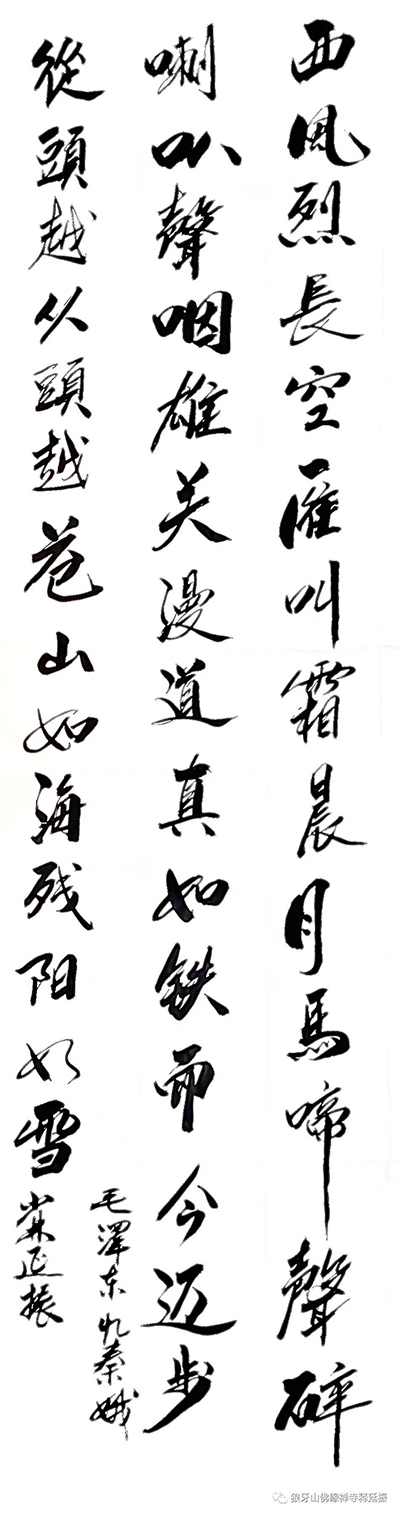 西風烈長空雁叫霜晨月馬啼聲碎
喇叭聲咽雄关漫道真如铁而今迈步
從頭越从頭越苍山如海残阳如雪
毛澤东忆秦娥
少林延振
狼牙山佛緣禅寺释延振